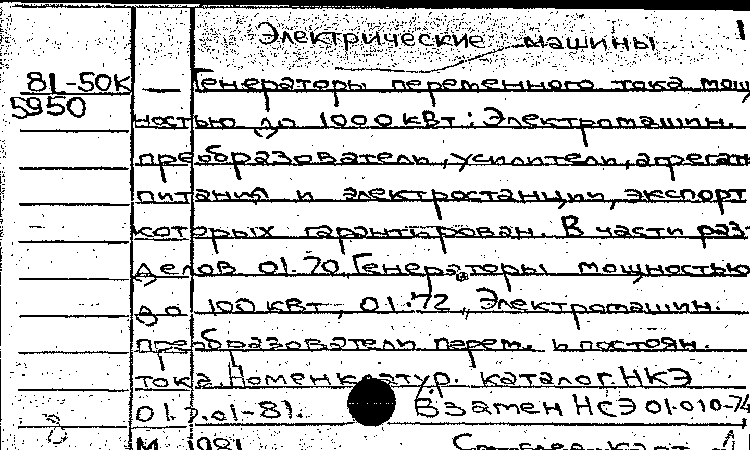 Электрические машины 1
81-50К — Генераторы переменного тока мощ
5950
ностью до 1000 кВт: Электромашин.
преобразователи, усилители, агрегат
питания и электростанции, экспорт
которых гарантирован. В части раз-
делов 01.70 "Генераторы мощностью
до 100 кВт", 01.72 "Электромашин.
преобразователи перем. и постоян.
тока. Номенклатур. каталог НКЭ
01. .01-81. Взамен НСЭ 01.010-74
М. 1981